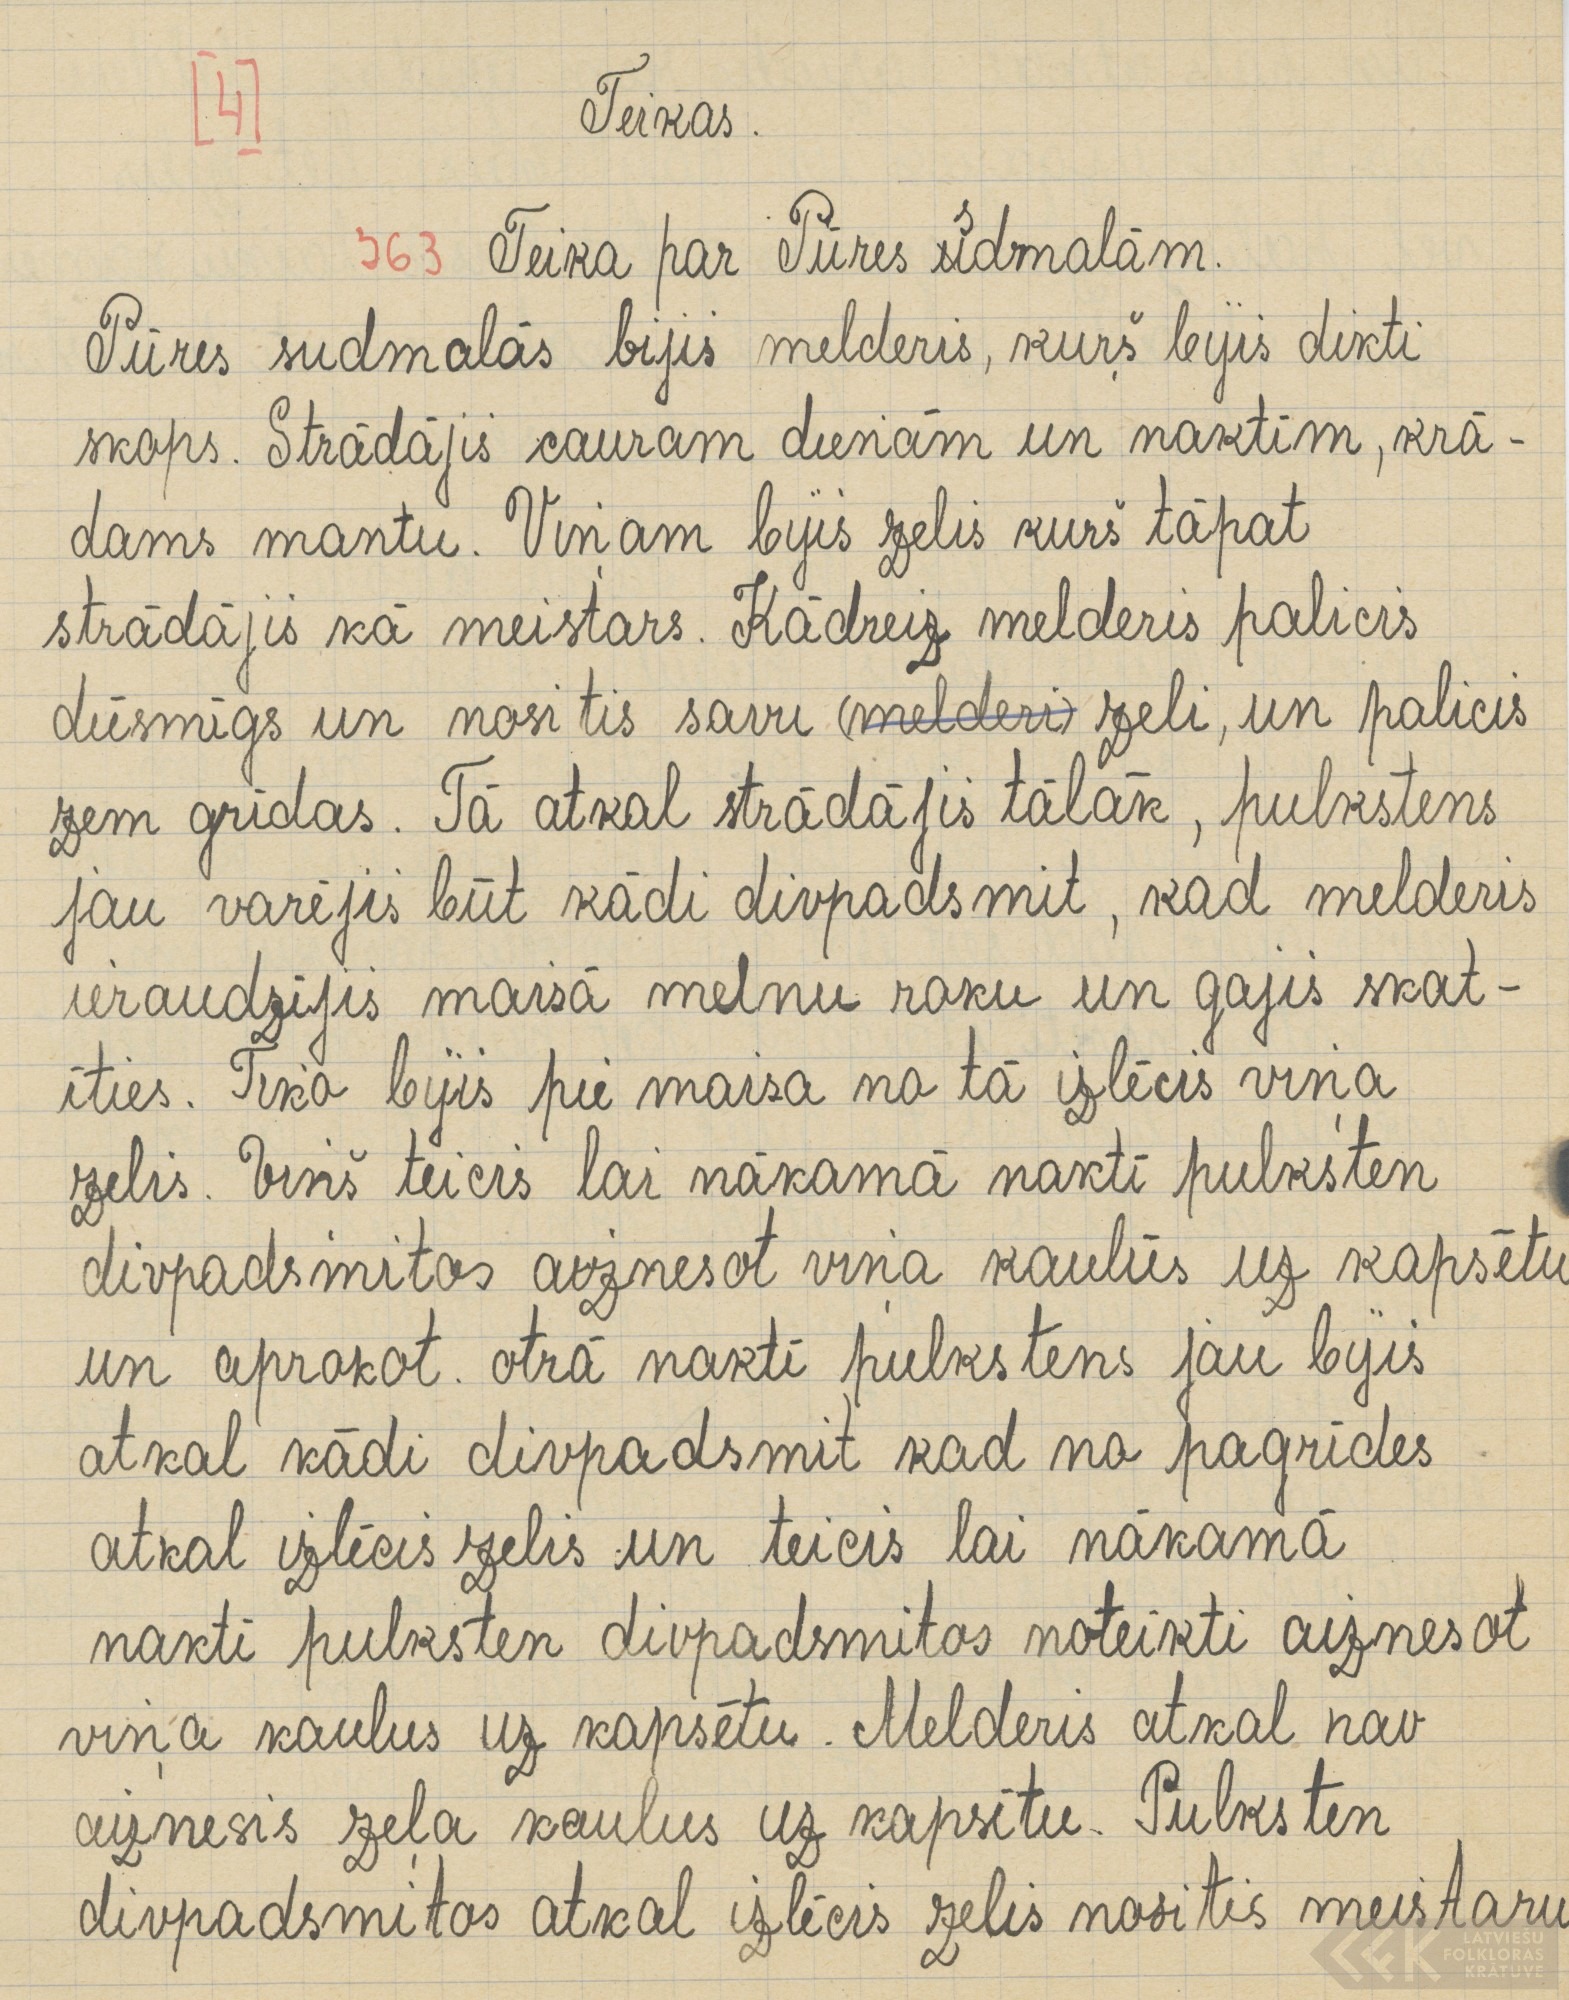 [4]
Teikas.
363 Teika par Pūres sūdmalām.
Pūres sudmalās bijis melderis, kuŗš bijis dikti
skops. Strādājis cauram dienām un naktīm, krā-
dams mantu. Viņam bijis zelis kurš tāpat
strādājis kā meistars. Kādreiz melderis palicis
dūsmīgs un nositis savu (melderi) zeli, un palicis
zem grīdas. Tā atkal strādājis tālāk, pulkstens
jau varējis būt kādi divpadsmit, kad melderis
ieraudzījis maisā melnu roku un gajis skat-
īties. Tiko bijis pie maisa no tā izlēcis viņa
zelis. Viņš teicis lai nākamā naktī pulksten
divpadsmitos aiznesot viņa kaulūs uz kapsētu
un aprokot. otrā naktī pulkstens jau bijis
atkal kādi divpadsmit kad no pagrīdes
atkal izlēcis zelis un teicis lai nākamā
naktī pulksten divpadsmitos noteikti aiznesot
viņa kaulus uz kapsētu. Melderis atkal nav
aiznesis zeļa kaulus uz kapsētu. Pulksten
divpadsmitos atkal izlēcis zelis nositis meistaru
LATVIEŠU
FOLKLORAS
KRĀTUVE